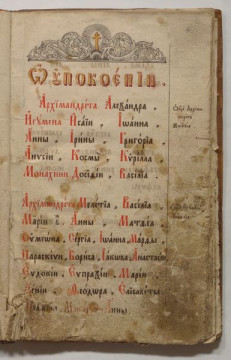 Ѡ упокоєнїи
Архїмандрита Алеѯандра .
Игумена Исаїи . Іѡанна .
Анны . Ірины . Григорїа
Анисїи . Космы . Кѷрилла
Монахини Досїѳеи . Василїа .
Архїмандрита Мелетїа . Василїа
Марїи . Анны . Матѳеа
Сѷмеѡна . Сергїа . Іѡанна . Марѳы
Параскеѵи . Бориса . Іакѡва . Анастасїи
Еѵдокїи . Еѵпраѯїи . Марїи
Ксенїи . Ѳеодѡра . Елїсаветы
Анны